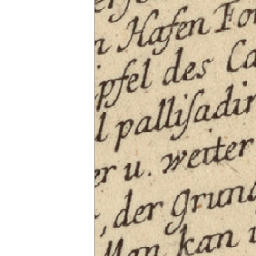 n Hafen For
ipfel des Ca
l palliſadir
er u. weiter
, der grund
Man kan